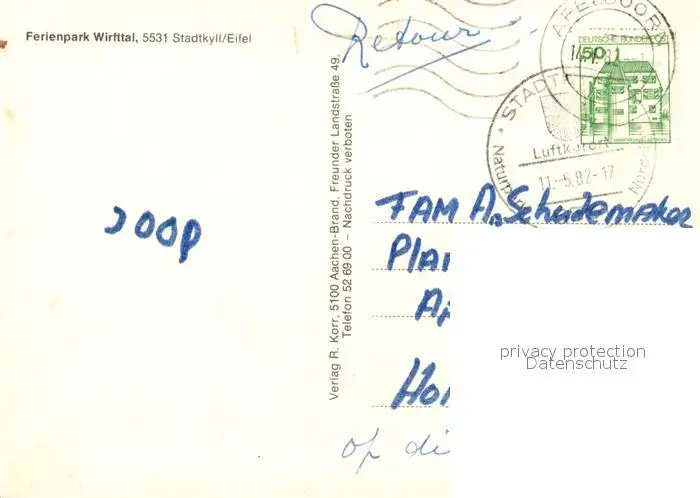 Ferienpark Wirfttal, 5531 Stadtkyll/Eifel
Retour
APELDOORN
DEUTSCHE BUNDESPOST
50
STADT
Luftkurort
11.-5.82-17
Joop
Verlag R. Korr, 5100 Aachen-Brand, Freunder Landstraße 49,
Telefon 52 69 00 – Nachdruck verboten
FAM A. Schademaker
Pla
Ap
Hol
op di
privacy protection
Datenschutz